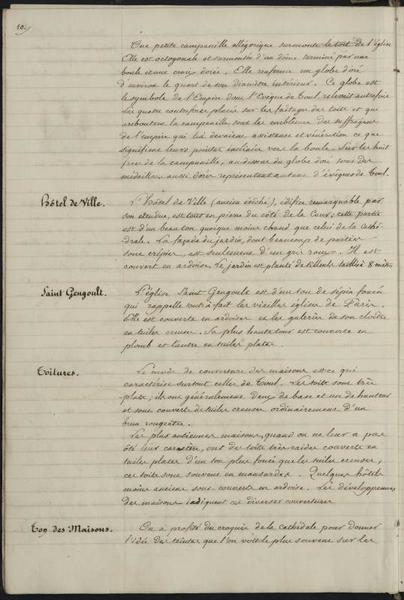 Une petite campanille allégorique surmonte le toit de l'Eglise
Elle est octogonale et surmontée d'un dôme terminé par une
boule et une croix dorée. Elle renferme un globe doré
d'environ le quart de son diamètre intérieur. Ce globe est
le symbole de l'Empire dont l'Evêque de Toul relevait autrefois
les quatre contreforts placés sur les faîtages du toit et qui
arcboutent la campanille sont les emblèmes des suffrages
de l'empire qui lui devaient assistance et vénération ce que
signifient leurs pointes inclinées vers la boule. Sur les huit
faces de la campanille, au dessus du globe doré sont des
médailles aussi dorées représentant autant d'évêques de Toul.
Hôtel de Ville. L'Hôtel de Ville (ancien évêché), édifice remarquable par
son étendue, est tout en pierre du côté de la Cour; cette partie
est d'un beau ton quoique moins chaud que celui de la Cathé-
drale. La façade du jardin, dont beaucoup de parties
sont crépies, est seulement d'un gris roux. Il est
couvert en ardoises. Le jardin est planté de tilleuls taillés à 8 mèt.
Saint Gengoult. L'église Saint Gengoult est d'un ton de sépia foncé
qui rappelle tout à fait les vieilles églises de Paris.
Elle est couverte en ardoises et les galeries de son cloître
en tuiles creuses. La plus haute tour est couverte en
plomb et l'autre en tuiles plates.
Toitures. Le mode de couverture des maisons est ce qui
caractérise surtout celles de Toul. Les toits sont très
plats; ils ont généralement deux de base et un de hauteur
et sont couverts de tuiles creuses ordinairement d'un
brun rougeâtre.
Les plus anciennes maisons, quand on ne leur a pas
ôté leur caractère, ont des toits très raides couverts en
tuiles plates d'un ton plus foncé que les tuiles creuses;
ces toits sont souvent en mansardes. Quelques hôtels
moins anciens sont couverts en ardoises. Les développements
des maisons indiquent ces diverses couvertures
Ton des Maisons. On a profité du croquis de la cathédrale pour donner
l'idée des teintes que l'on voit le plus souvent sur les